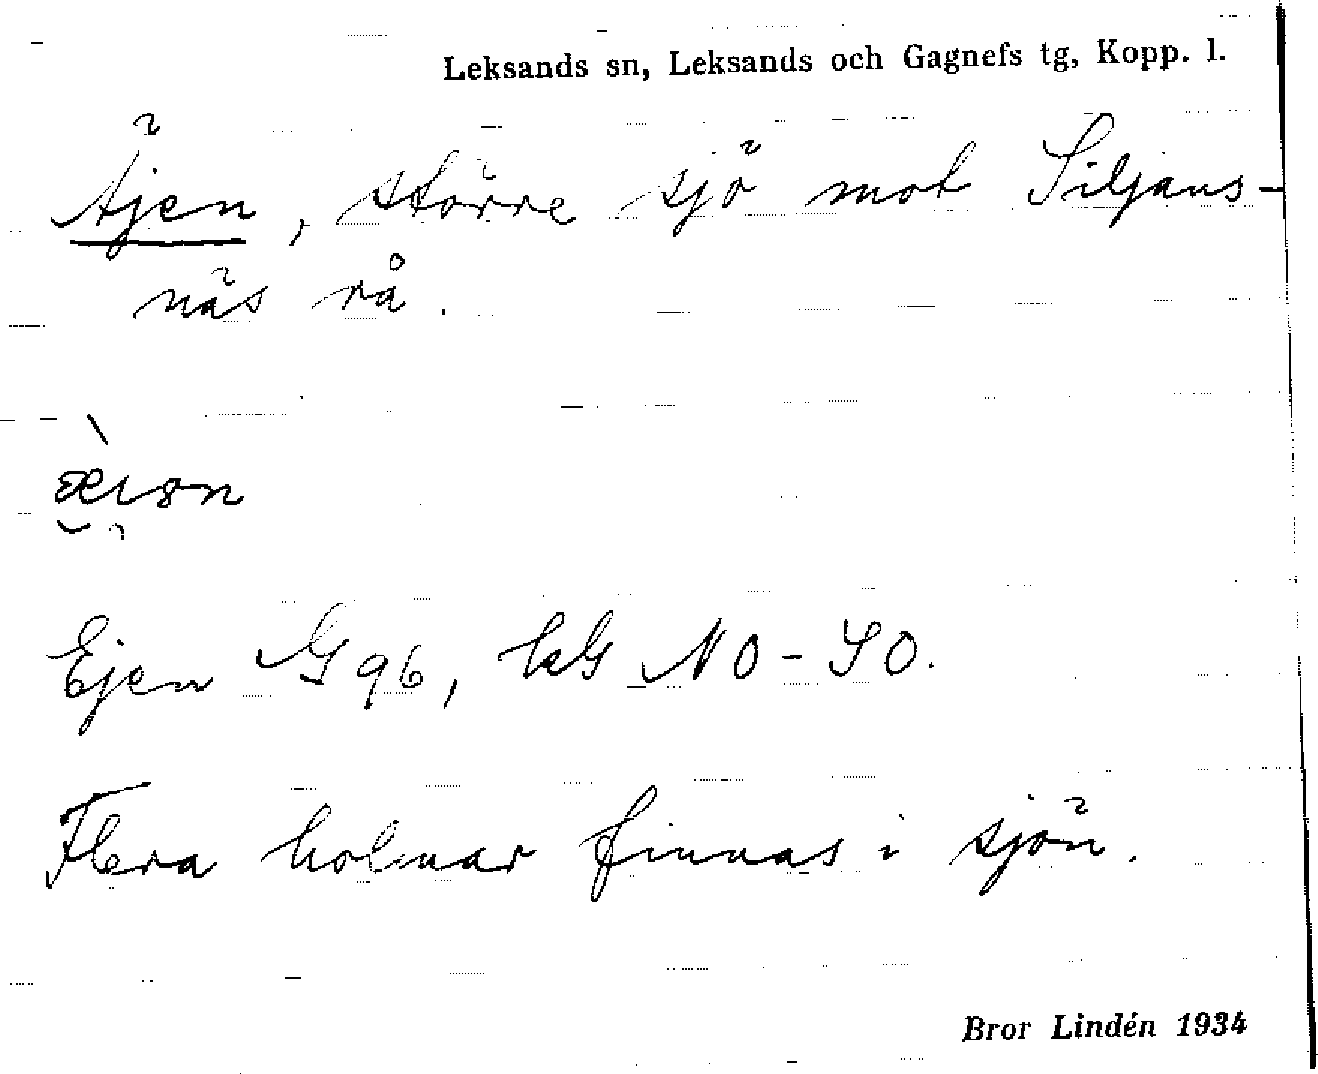 Leksands sn, Leksands och Gagnefs tg, Kopp. l.
Äjen, större sjö mot Siljans-
näs rå.
Ejen G 96, bl. NO-SO.
Flera holmar finnas i sjön.
Bror Lindén 1934